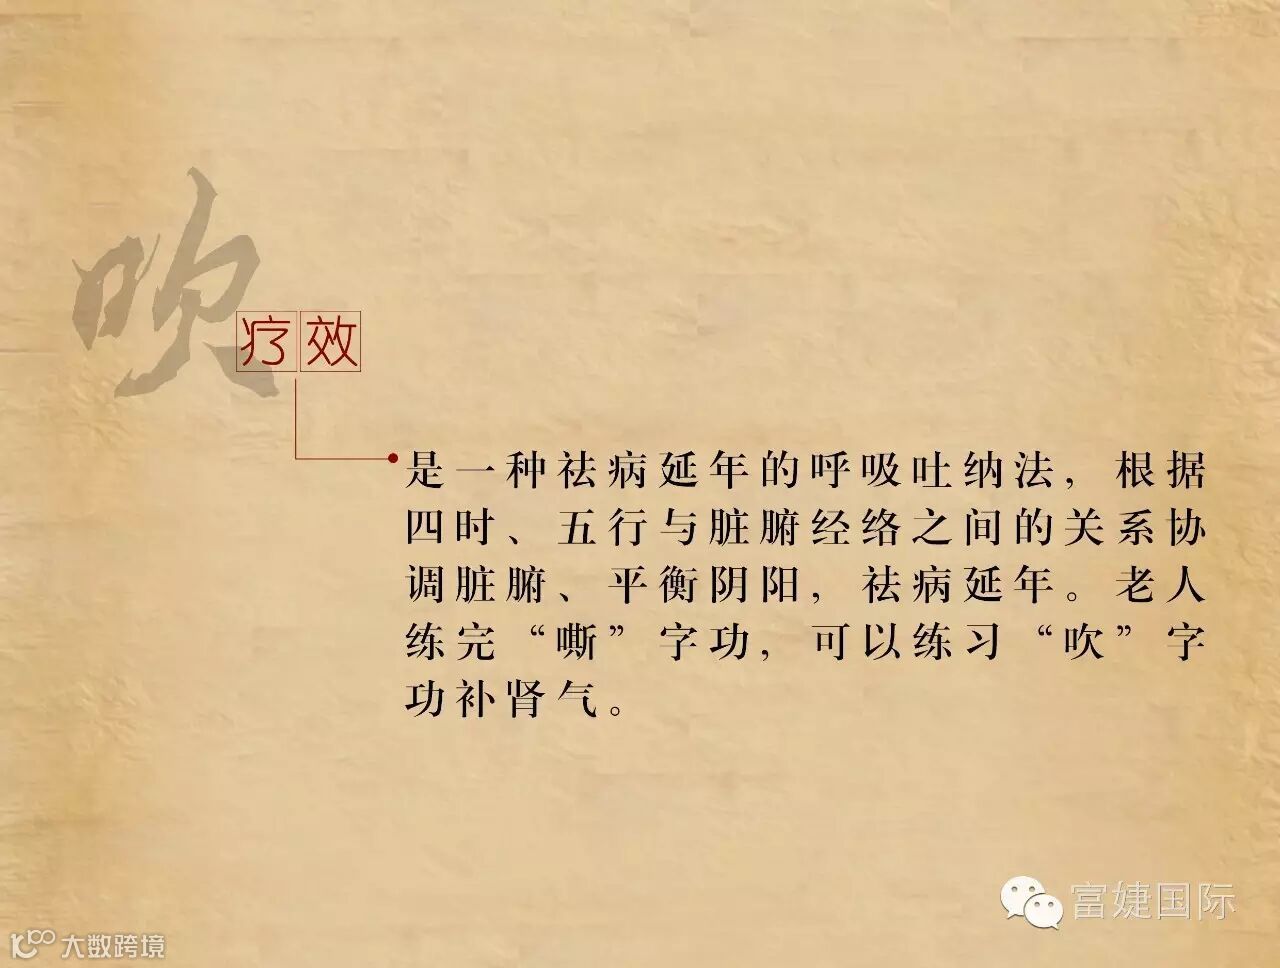 吹
疗效
是一种祛病延年的呼吸吐纳法，根据
四时、五行与脏腑经络之间的关系协
调脏腑、平衡阴阳，祛病延年。老人
练完“嘶”字功，可以练习“吹”字
功补肾气。
富婕国际
大数跨境